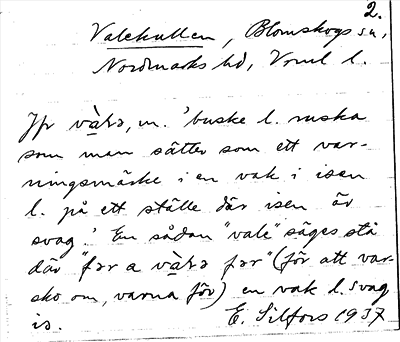 2.
Valekullen, Blomskogs sn,
Nordmarks hd, Vrml l.
Jfr vàlə, m. 'buske l. ruska
som man sätter som ett var-
ningsmärke i en vak i isen
l. på ett ställe där isen är
svag.' En sådan "vale" säges stå
där "fər a vàlə fər" (för att var-
sko om, varna för) en vak l. svag
is. E. Silfors 1937